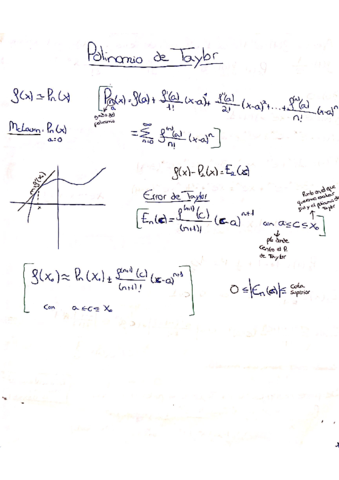 Polinomio de Taylor
f(x) ≃ Pn(x) [Pn,a(x) = f(a) + f'(a)/1! (x-a)¹ + f''(a)/2! (x-a)² + ... + fⁿ⁾(a)/n! (x-a)ⁿ
grado del polinomio
McLaurin: Pn(x) a=0
= ∞ Σ n=0 fⁿ⁾(a)/n! (x-a)ⁿ]
f(x)
f(x) - Pn(x) = En(x)
Error de Taylor
[En(x) = f⁽ⁿ⁺¹⁾(c)/(n+1)! (x-a)ⁿ⁺¹ con a≤c≤x₀]
en el que queremos
y el polinomio de Taylor
pto donde
centro el P.
de Taylor
[f(x₀) ≈ Pn(x₀) ± fⁿ⁺¹⁾(c)/(n+1)! (x-a)ⁿ⁺¹
con a≤c≤x₀]
0 ≤ |En(x)| ≤ cota superior